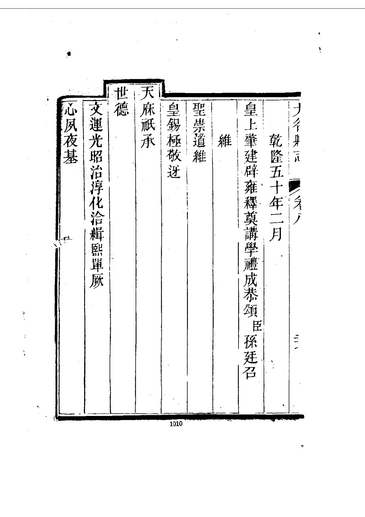 乾隆五十年二月
皇上肇建辟雍釋奠講學禮成恭頌 臣 孫廷召
維
聖崇道維
皇錫極敬迓
天庥祇承
世德
文運光昭治淳化洽緝熙單厥
心夙夜基
1010